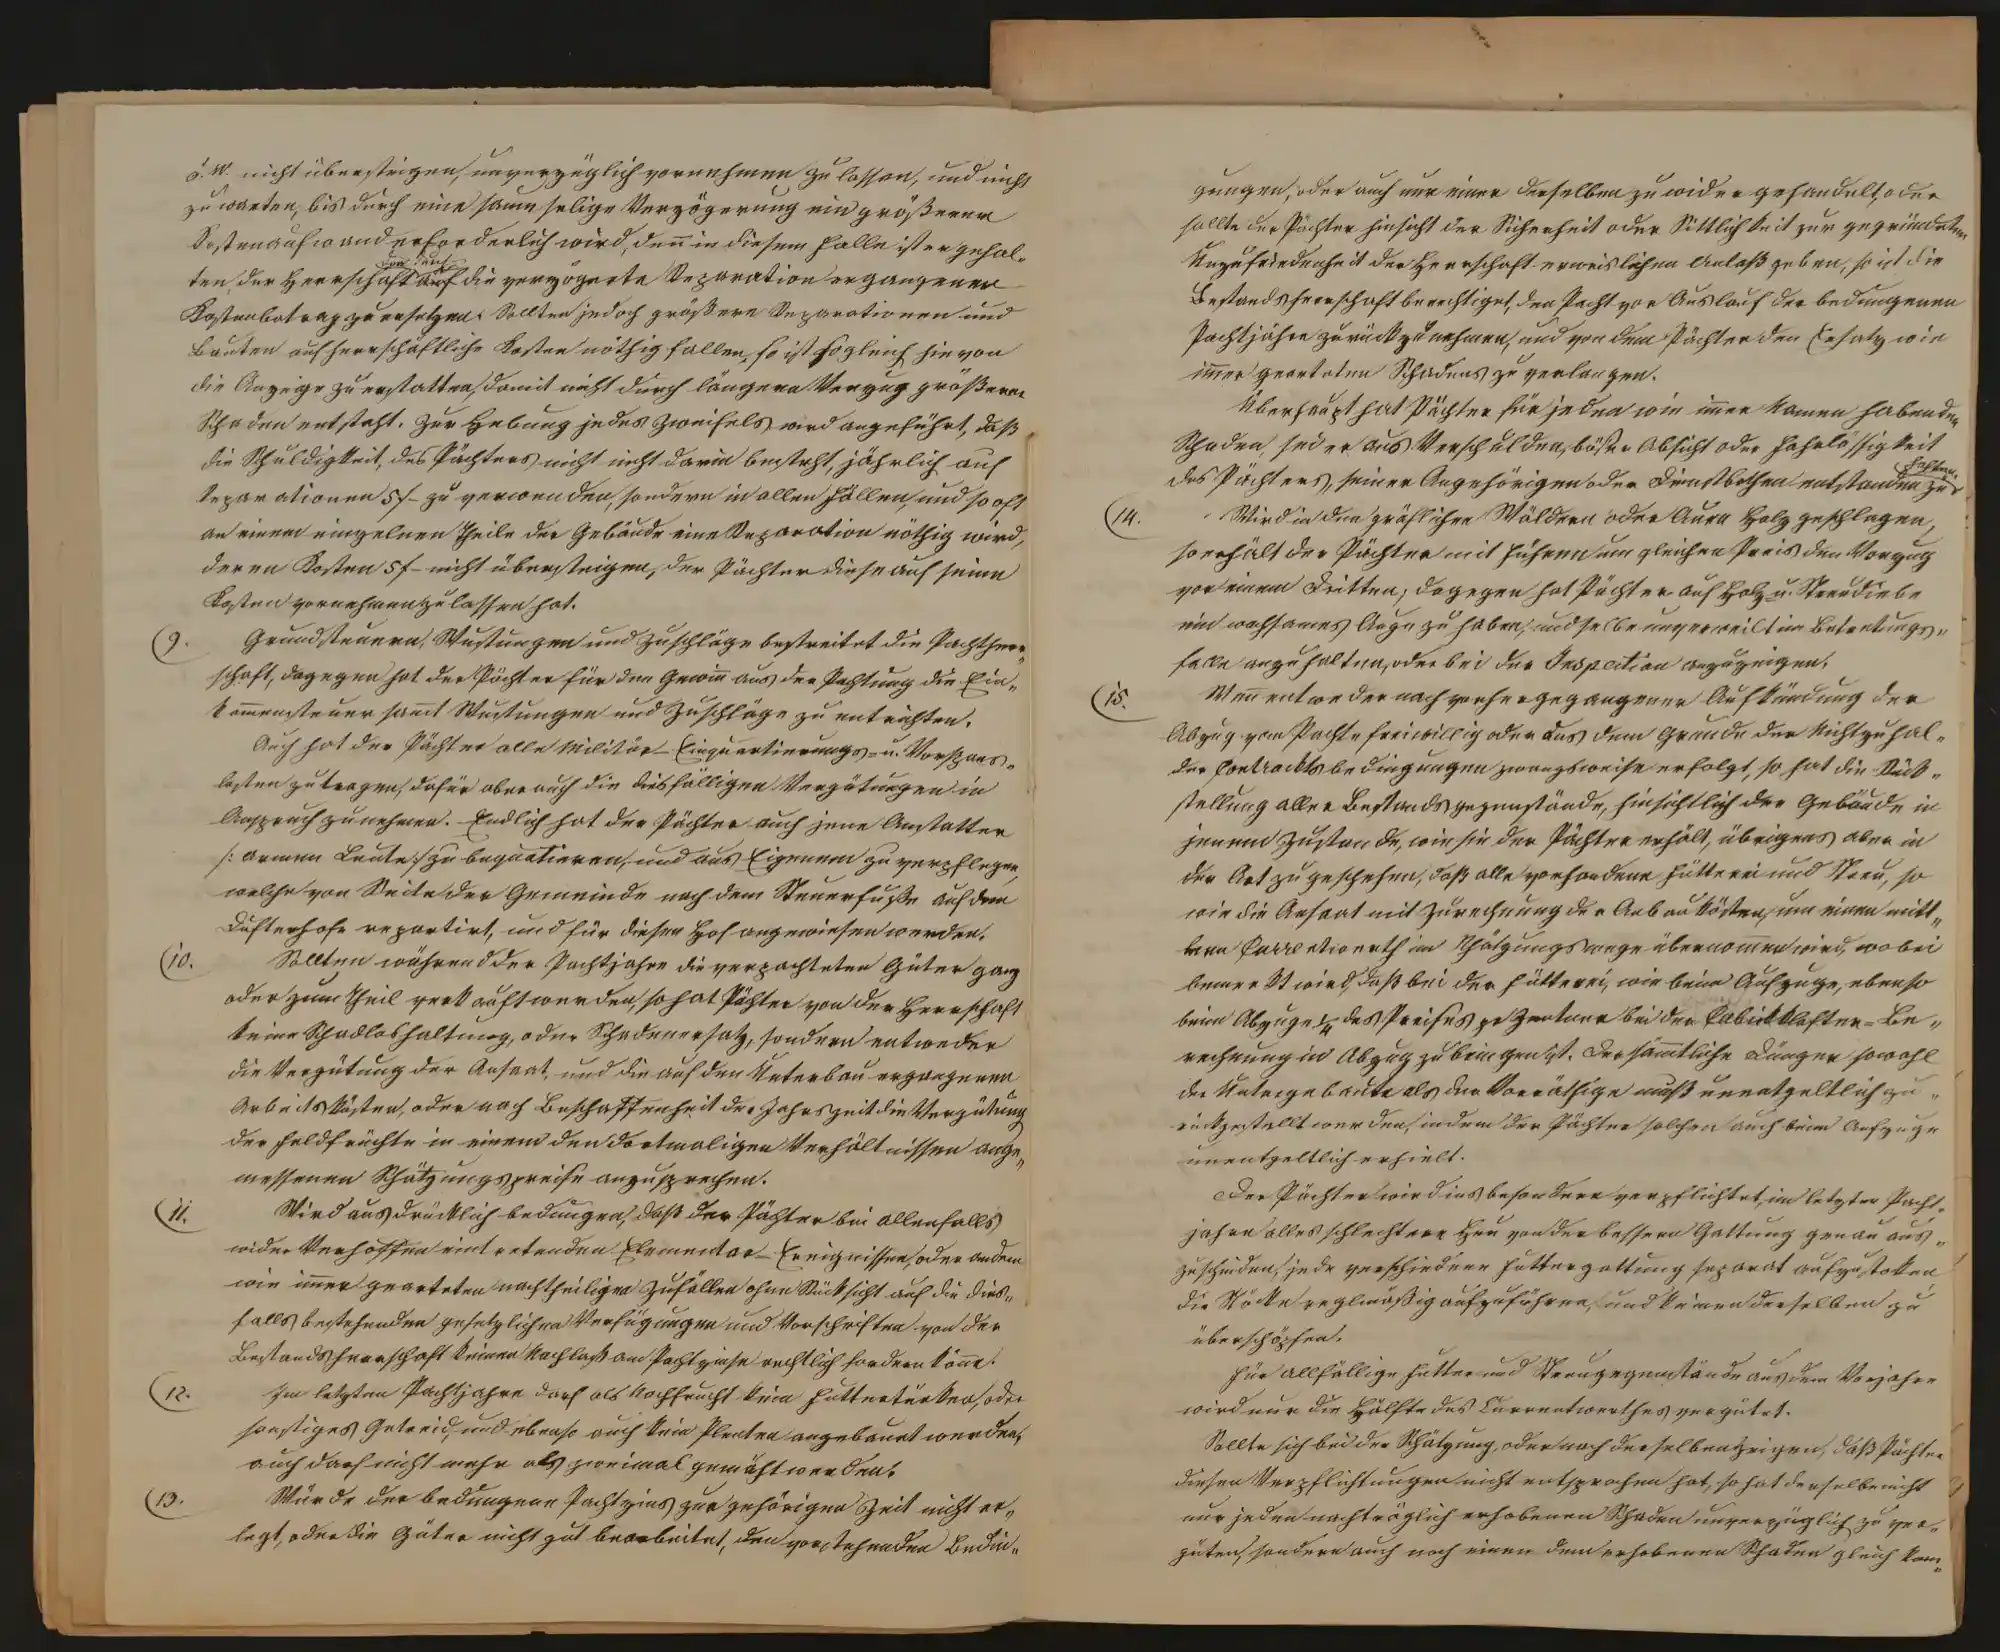 ö. W. nicht übersteigen, unverzüglich vornehmen zu lassen, und nicht
zu warten, bis durch eine saumselige Verzögerung ein größerer
Kostenaufwand erforderlich wird, den̄ in diesem Falle ist er gehal-
ten, der Herrschaft den durch die verzögerte Reparation ergangenen
Kostenbetrag zu ersetzen. Sollten jedoch größere Reparationen und
Bauten auf herrschäftliche Kosten nöthig fallen, so ist sogleich hievon
die Anzeige zu erstatten, damit nicht durch längern Verzug größerer
Schaden entsteht. Zur Hebung jedes Zweifels wird angeführt, daß
die Schuldigkeit des Pächters nicht darin besteht, jährlich auf
Reparationen 5 f– zu verwenden, sondern in allen Fällen, und so oft
an einem einzelnen Theile der Gebäude eine Reparation nöthig wird,
deren Kosten 5 f– nicht übersteigen, der Pächter diese auf seine
Kosten vornehmen zu lassen hat.
9. Grundsteuern, Wustungen und Zuschläge bestreitet die Pachtherr-
schaft, dagegen hat der Pächter für den Gewin̄ aus der Pachtung die Ein-
kom̄ensteuer sam̄t Wustungen und Zuschläge zu entrichten.
Auch hat der Pächter alle Militär-Einquartierungs- u. Vorspans-
lasten zu tragen, dafür aber auch die diesfälligen Vergütungen in
Anspruch zu nehmen. Endlich hat der Pächter auch jene
/: armen Leute :/ zu bequatieren, und aus Eigenem zu verpflegen,
welche von Seite der Gemeinde nach dem Steuerfuße auf den
repartirt, und für diesen Hof angewiesen werden.
10. Sollten während der Pachtjahre die verpachteten Güter ganz
oder zum Theil verkauft werden, so hat Pächter von der Herrschaft
keine Schadloshaltung, oder Schadenersatz, sondern entweder
die Vergütung der Ansaat, und die auf den Unterbau ergangenen
Arbeitskösten, oder nach Beschaffenheit der Jahrszeit die Vergütung
der Feldfrüchte in einem den dortmaligen Verhältnissen ange-
messenen Schätzungspreise anzusprechen.
11. Wird ausdrücklich bedungen, daß der Pächter bei allenfalls
wider Verhoffen eintretenden Elementar-Ereignissen, oder andern
wie im̄er gearteten nachtheiligen Zufällen ohne Rücksicht auf die dies-
falls bestehenden gesetzlichen Verfügungen und Vorschriften von der
Bestandsherrschaft keinen Nachlaß am Pachtzinse rechtlich fordern kön̄e.
12. Im letzten Pachtjahre darf als Nachfrucht kein Futtertürken, oder
sonstiges Getreid, und ebenso auch kein Plenten angebaut werden,
auch darf nicht mehr als zweimal gemäht werden.
13. Würde der bedungene Pachtzins zur gehörigen Zeit nicht er-
legt, oder die Güter nicht gut bearbeitet, den vorstehenden Bedin-
gungen, oder auch nur einer derselben zuwider gehandelt, oder
sollte der Pächter hinsicht der Sicherheit oder Sittlichkeit zur gegründeten
Unzufriedenheit der Herrschaft erweislichen Anlaß geben, so ist die
Bestandsherrschaft berechtiget, den Pacht vor Auslauf der bedungenen
Pachtjahre zurückzunehmen, und von dem Pächter den Ersatz wie
im̄er gearteten Schadens zu verlangen.
Überhaupt hat Pächter für jeden wie im̄er Namen habenden
Schaden, sei er aus Verschulden, böser Absicht oder Fahrlässigkeit
des Pächters, seiner Angehörigen oder Dienstbothen entstanden zu haften.
14. Wird in den gräflichen Wäldern oder Auen Holz geschlagen,
so erhält der Pächter mit Führen um gleichen Preis den Vorzug
vor einem Dritten; dagegen hat Pächter auf Holz- u. Streudiebe
ein wachsames Auge zu haben, und selbe unverweilt im Betretungs-
falle anzuhalten, oder bei der Inspection anzuzeigen.
15. Wen̄ entweder nach vorhergegangener Aufkündung der
Abzug vom Pachte freiwillig oder aus dem Grunde der Nichtzuhal-
der Contracktsbedingungen zwangsweise erfolgt, so hat die Rück-
stellung aller Bestandsgegenstände, hinsichtlich der Gebäude in
jenem Zustande, wie sie der Pächter erhält, übrigens aber in
der Art zu geschehen, daß alle vorhandene Fütterei und Streu, so
wie die Ansaat mit Zurechnung der Anbaukösten, um einen mitt-
lern Currentwerth im Schätzungswege übernom̄en wird, wobei
bemerkt wird, daß bei der Fütterei, wie beim Aufzuge, ebenso
beim Abzuge ¼ des Preises pr Zentner bei der Cubickklafter-Be-
rechnung in Abzug zu bringen ist. Der säm̄tliche Dünger sowohl
der Untergebaute als der Vorräthige muß unentgeltlich zu-
rückgestellt werden, indem der Pächter solchen auch beim Aufzuge
unentgeltlich erhielt.
Der Pächter wird insbesondere verpflichtet, im letzten Pacht-
jahre alles schlechtere Heu von der bessern Gattung genau aus-
zuscheiden, jede verschiedene Futtergattung separat aufzustocken
die Stöcke reglmäßig aufzuführen, und keinen derselben zu
überschöpfen.
Für allfällige Futter und Streugegenstände aus dem Vorjahre
wird nur die Hälfte des Currentwerthes vergütet.
Sollte sich bei der Schätzung, oder nach derselben zeigen, daß Pächter
diesen Verpflichtungen nicht entsprochen hat, so hat derselbe nicht
nur jeden nachträglich erhobenen Schaden unverzüglich zu ver-
güten, sondern auch noch einen dem erhobenen Schaden gleich kom-